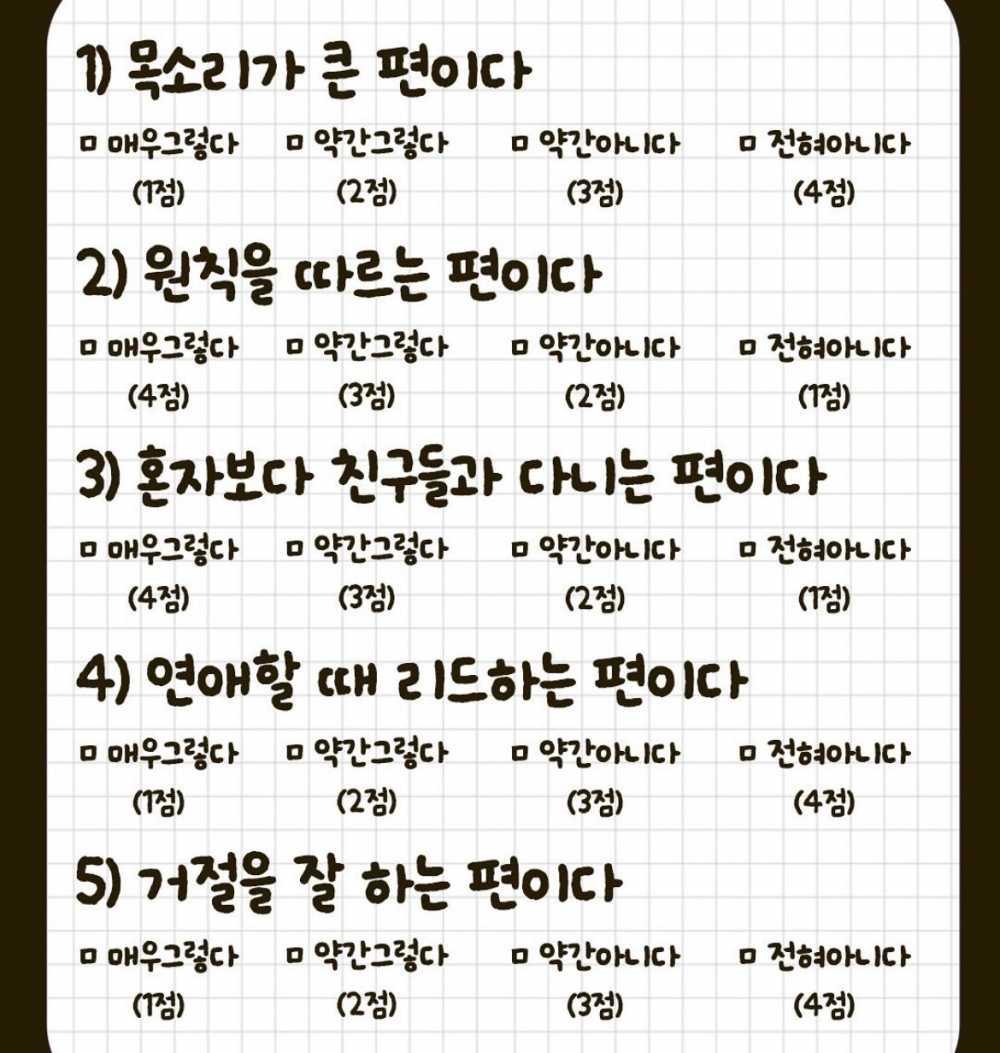 1) 목소리가 큰 편이다
□ 매우그렇다 □ 약간그렇다 □ 약간아니다 □ 전혀아니다
(1점) (2점) (3점) (4점)
2) 원칙을 따르는 편이다
□ 매우그렇다 □ 약간그렇다 □ 약간아니다 □ 전혀아니다
(4점) (3점) (2점) (1점)
3) 혼자보다 친구들과 다니는 편이다
□ 매우그렇다 □ 약간그렇다 □ 약간아니다 □ 전혀아니다
(4점) (3점) (2점) (1점)
4) 연애할 때 리드하는 편이다
□ 매우그렇다 □ 약간그렇다 □ 약간아니다 □ 전혀아니다
(1점) (2점) (3점) (4점)
5) 거절을 잘 하는 편이다
□ 매우그렇다 □ 약간그렇다 □ 약간아니다 □ 전혀아니다
(1점) (2점) (3점) (4점)